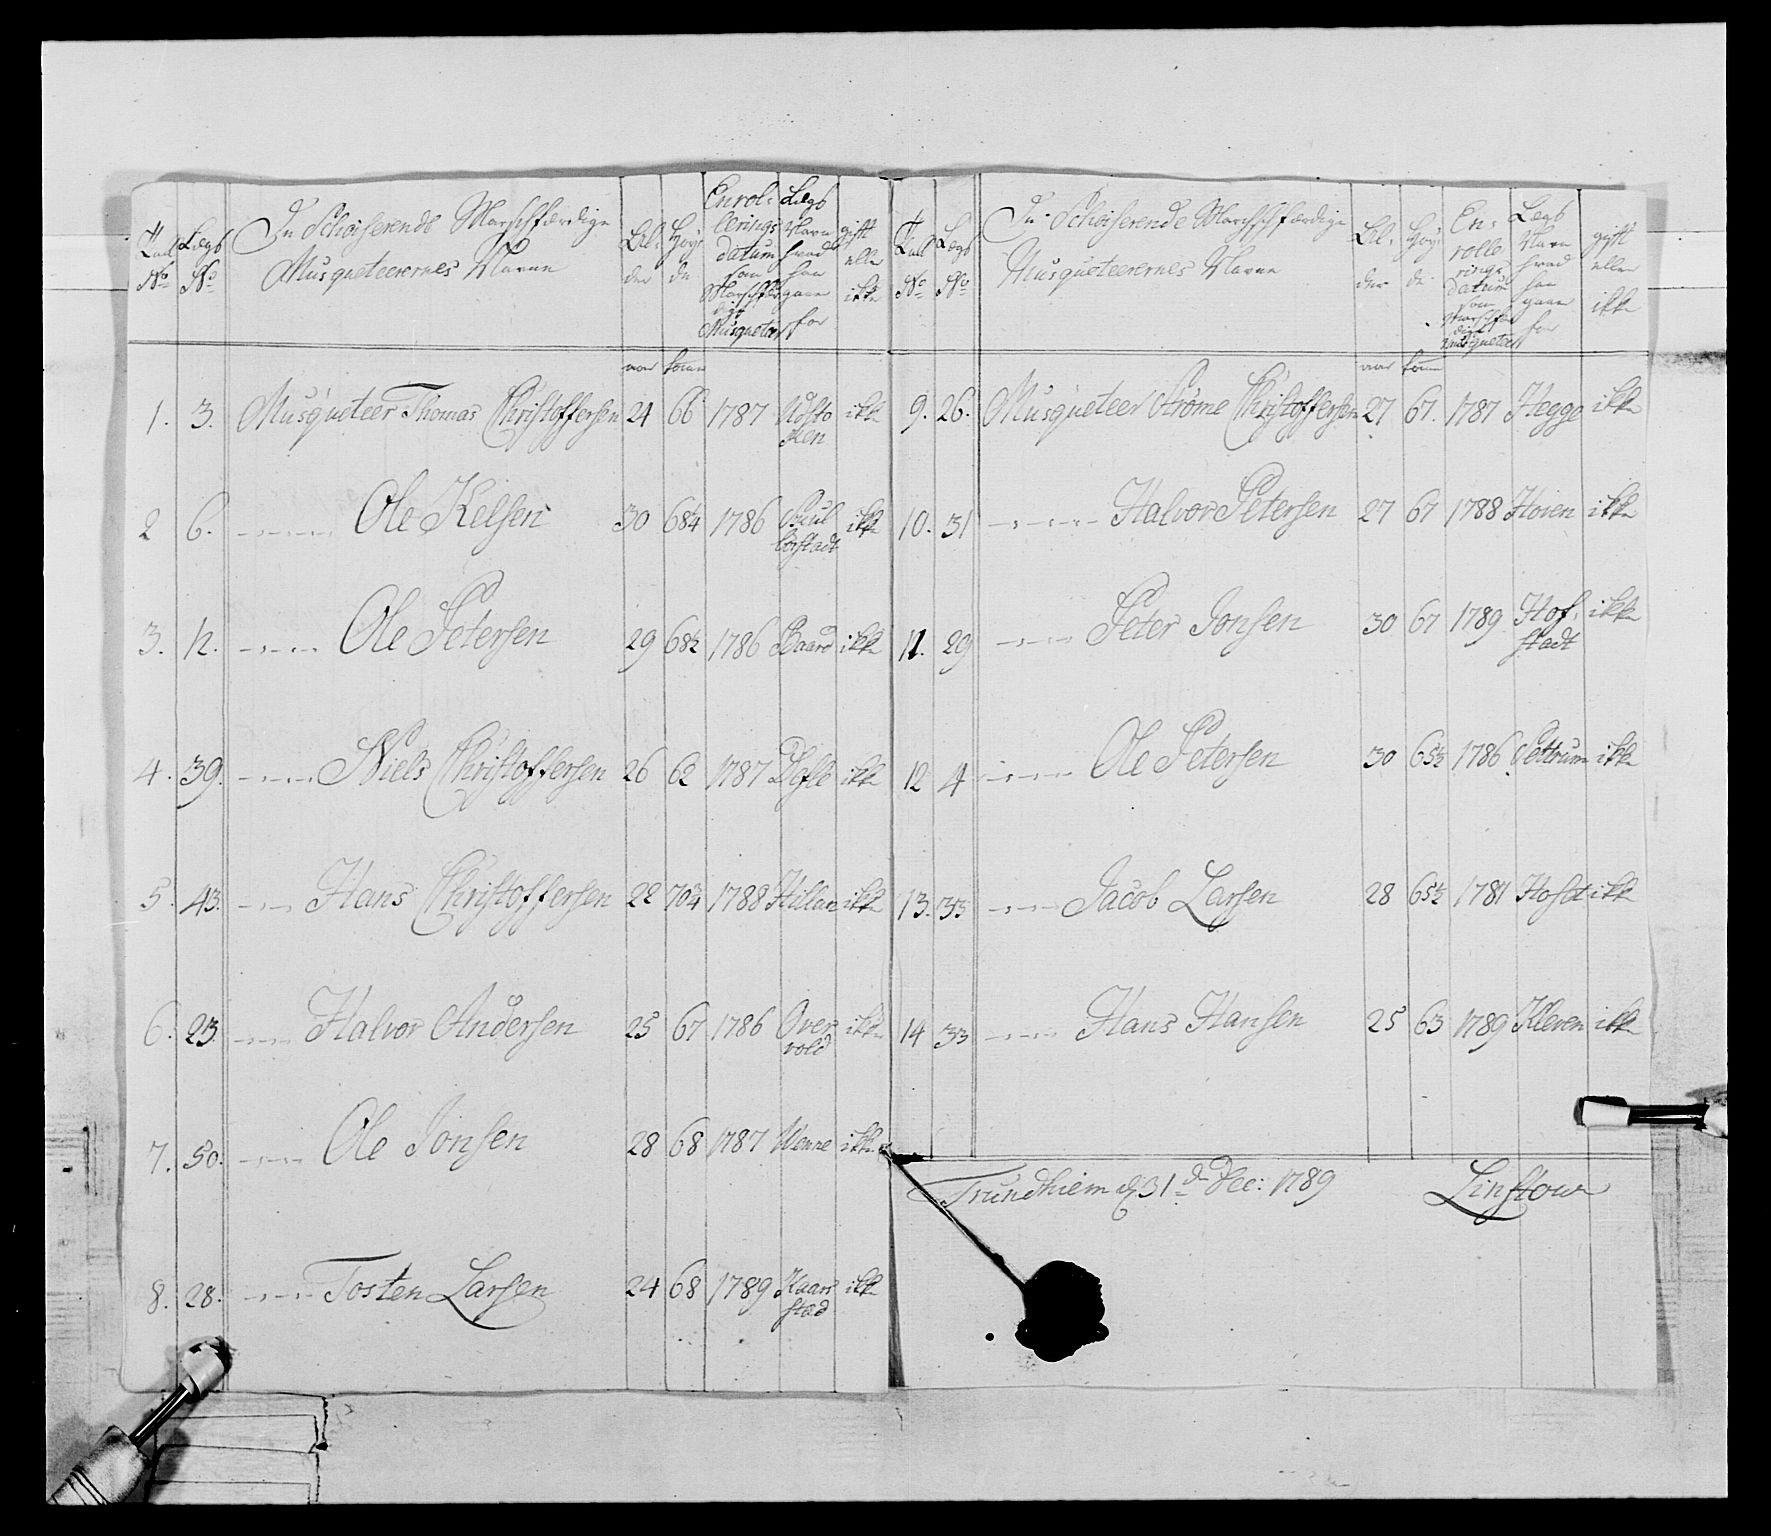 Tall No Lægs No De Schiiserende Marschfærdige Musqueteerernes Navne Al: der Høy: de Enrol: lerings datum som Marschfær digt Musqueteer Lægs Navn hvad han gaaer for gift eller ikke
aar tom
1. 3. Musqueteer Thomas Christoffersen 24 66 1787 ikke
2 6. Ole Kelsen 30 68¼ 1786 ikke
3. 12. Ole Petersen 29 68½ 1786 Baard ikke
4. 39. Niels Christoffersen 26 62 1787 ikke
5. 43. Hans Christoffersen 22 70¾ 1788 ikke
6. 23. Halvor Andersen 25 67 1786 Over vold ikke
7. 50. Ole Jonsen 28 68 1787 ikke
8. 28. Tosten Larsen 24 68 1789 ikke
Tall No Lægs No De Schiiserende Marschfærdige Musqueteerernes Navne Al: der Høy: de En: rolle rings datum som Marschfær digt Musqueteer Lægs Navn hvad han gaaer for gift eller ikke
aar tom
9. 26. Musqueteer Christoffersen 27 67. 1787 Hegge ikke
10. 31 Halvor Petersen 27 67 1788 Hoven ikke
11. 29 Peter Jonsen 30 67 1789 Hof: stadt ikke
12 4 Ole Petersen 30 65½ 1786 ikke
13. 33 Jacob Larsen 28 65½ 1781 ikke
14 33 Hans Hansen 25 63 1789 Kleven ikke
Trundhiem d: 31de Dec: 1789 Linstow